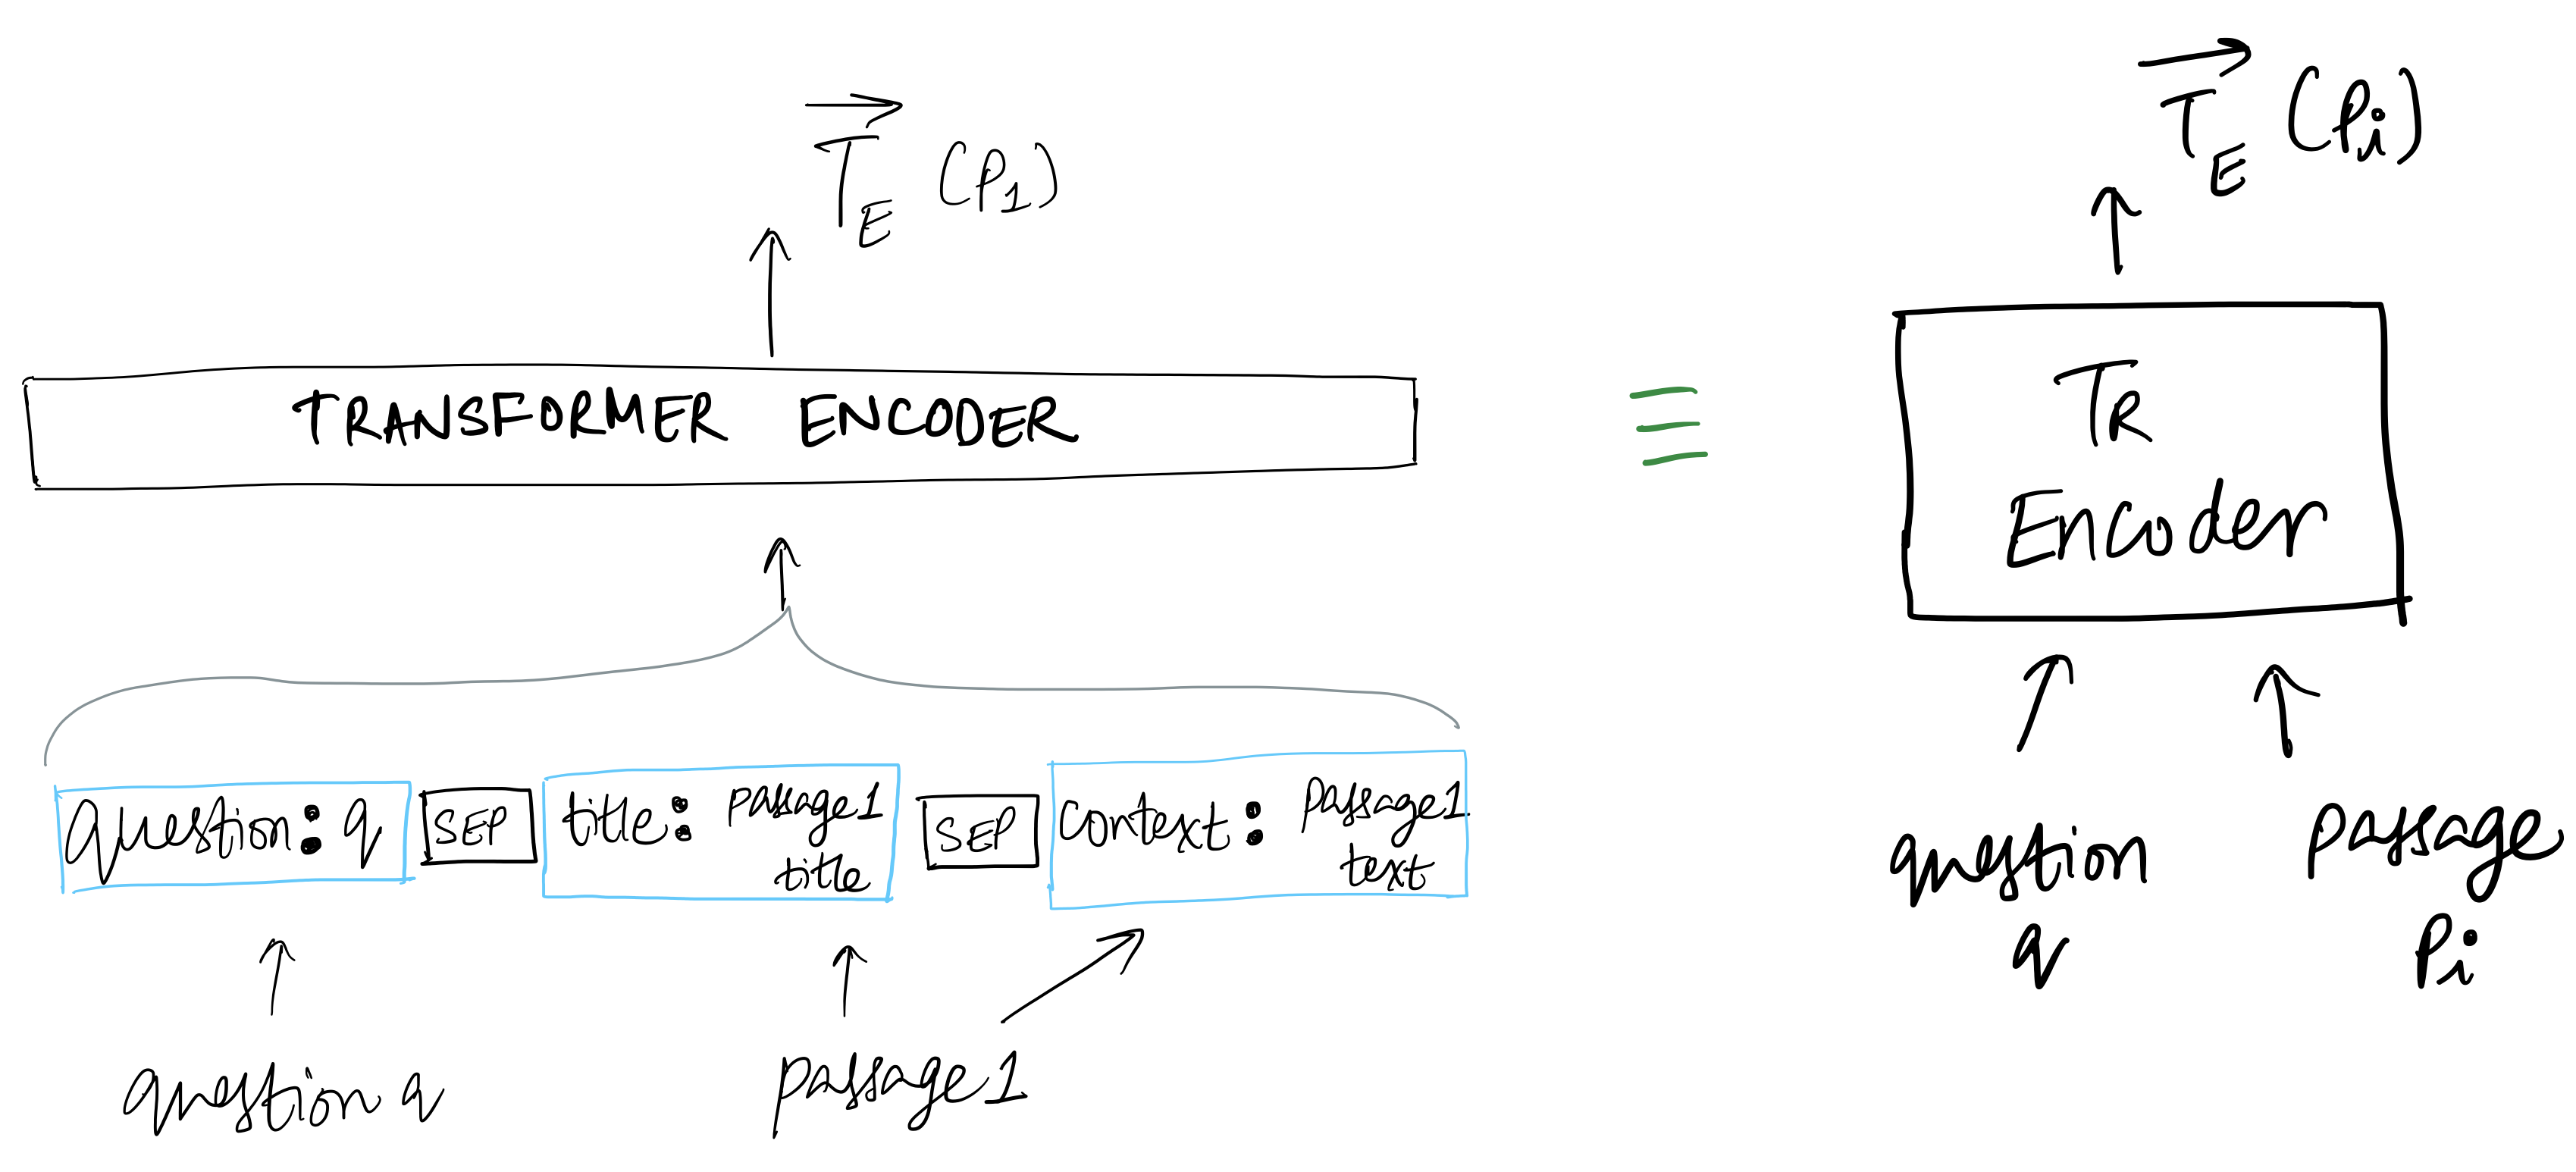 T_E (P1)
TRANSFORMER ENCODER
question: q
SEP
title: passage1
title
SEP
context: passage1
text
question q
passage1
≡
T_E (Pi)
TR
Encoder
question
q
passage
Pi